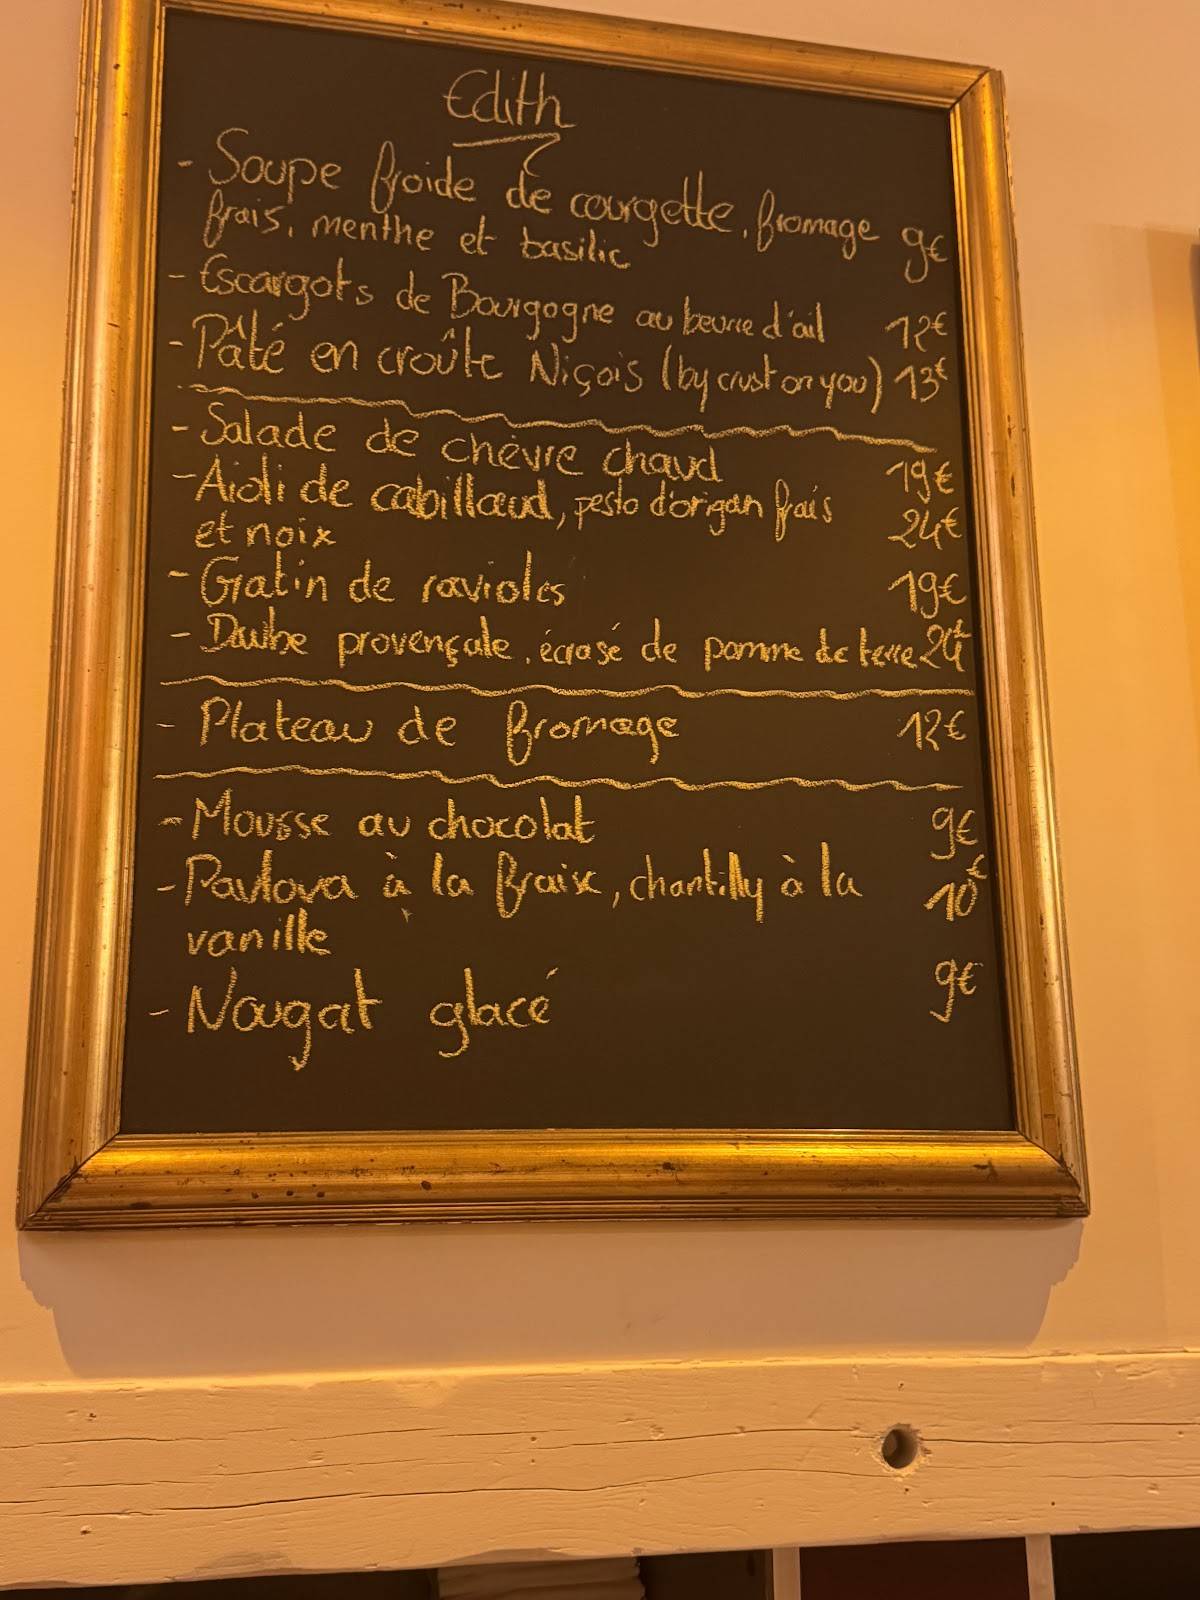 Edith
- Soupe froide de courgette, fromage 9€
frais, menthe et basilic
- Escargots de Bourgogne au beurre d'ail 12€
- Pâté en croûte Niçois (by crust on you) 13€
- Salade de chèvre chaud 19€
- Aïoli de cabillaud, pesto d'origan frais 24€
et noix
- Gratin de ravioles 19€
- Daube provençale, écrasé de pomme de terre 24€
- Plateau de fromage 12€
- Mousse au chocolat 9€
- Pavlova à la fraise, chantilly à la 10€
vanille
- Nougat glacé 9€